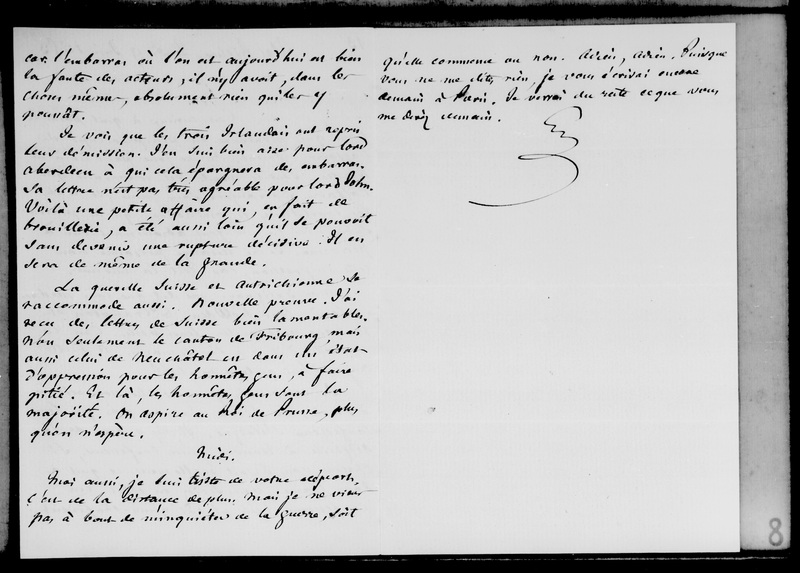 car l'embarras où l'on est aujourd'hui est bien
la faute des acteurs ; il n'y avoit, dans les
choses même, absolument rien qui les y
poussât.
Je vois que les trois Irlandais ont repris
leur démission. J'en suis bien aise pour lord
Aberdeen à qui cela épargnera des embarras.
Sa lettre n'est pas très agréable pour lord John.
Voilà une petite affaire qui, en fait de
brouillerie, a été aussi loin qu'il se pouvoit
sans devenir une rupture décisive. Il en
sera de même de la grande.
La querelle Suisse et Autrichienne se
raccommode aussi. Nouvelle preuve. J'ai
reçu des lettres de Suisse bien lamentables.
Non seulement le canton de Fribourg, mais
aussi celui de Neuchâtel est dans un état
d'oppression pour les honnêtes gens, à faire
pitié. Et là, les honnêtes gens sont la
majorité. On aspire au Roi de Prusse, plus
qu'on n'espère.
Midi.
Moi aussi, je suis triste de votre départ.
C'est de la distance de plus. Mais je ne viens
pas à bout de m'inquiéter de la guerre, soit
qu'elle commence ou non. Adieu, Adieu. Puisque
vous ne me dites rien, je vous écrirai encore
demain à Paris. Je verrai du reste ce que vous
me direz demain.
8